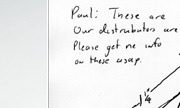 Paul: These are
Our distrubutors are
Please get me info
on these asap.
1/4